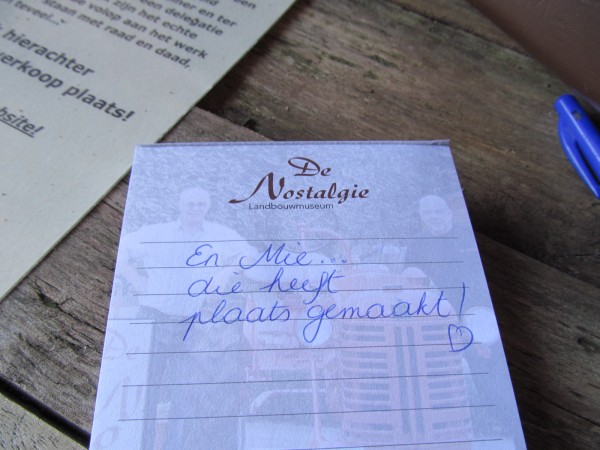 een delegatie
zijn het echte
volop aan het werk
Staan met raad en daad,
teveel...
hierachter
verkoop plaats!
website!
De
Nostalgie
Landbouwmuseum
En Mie...
die heeft
plaats gemaakt!